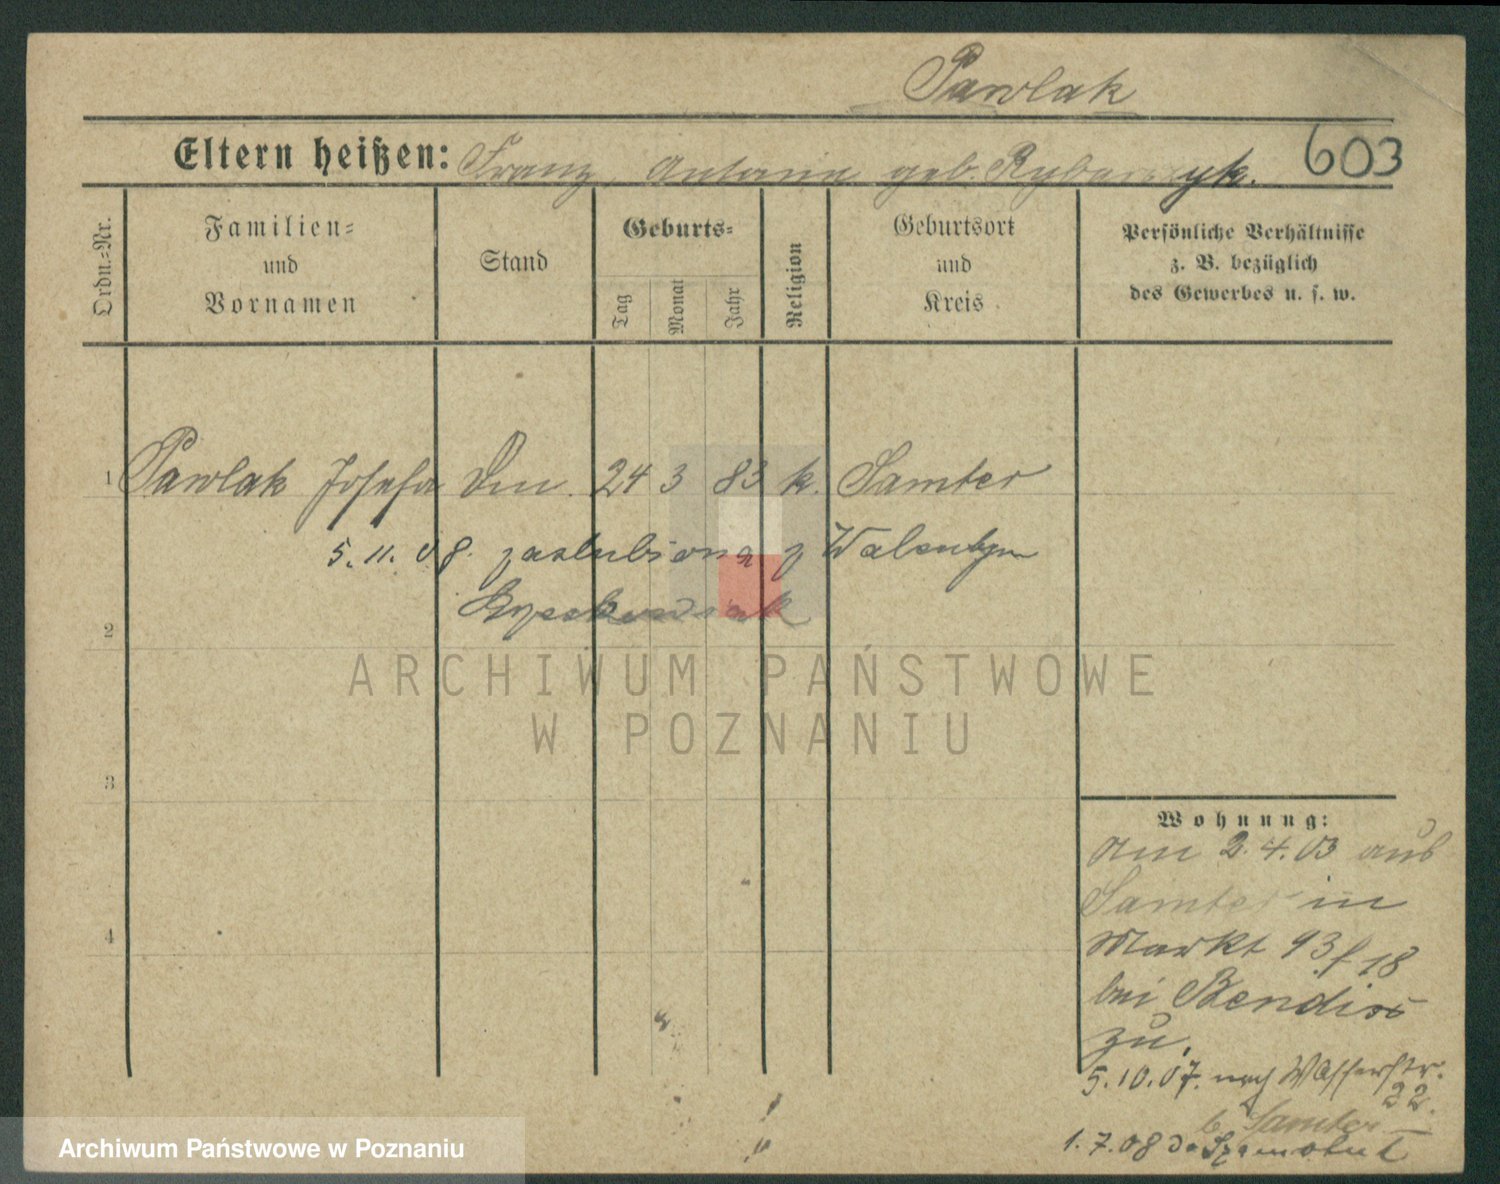 Pawlak
Eltern heißen: Franz, Antonie geb. Rybarczyk. 603
Ordn.-Nr.
Familien-
und
Vornamen
Stand
Geburts-
Tag
Monat
Jahr
Religion
Geburtsort
und
Kreis
Persönliche Verhältnisse
z. B. bezüglich
des Gewerbes u. s. w.
1 Pawlak Josefa 24 3 83 k. Samter
5. 11. 08. zaslubiona z Walentym
2
3
4
Wohnung:
am 2. 4. 03 aus
Samter in
Markt 93/18
bei Bendix
zu.
5.10.07. nach Wasserstr.
22.
b. Samter
1.7.08 do Szamotuł
ARCHIWUM PAŃSTWOWE
W POZNANIU
Archiwum Państwowe w Poznaniu